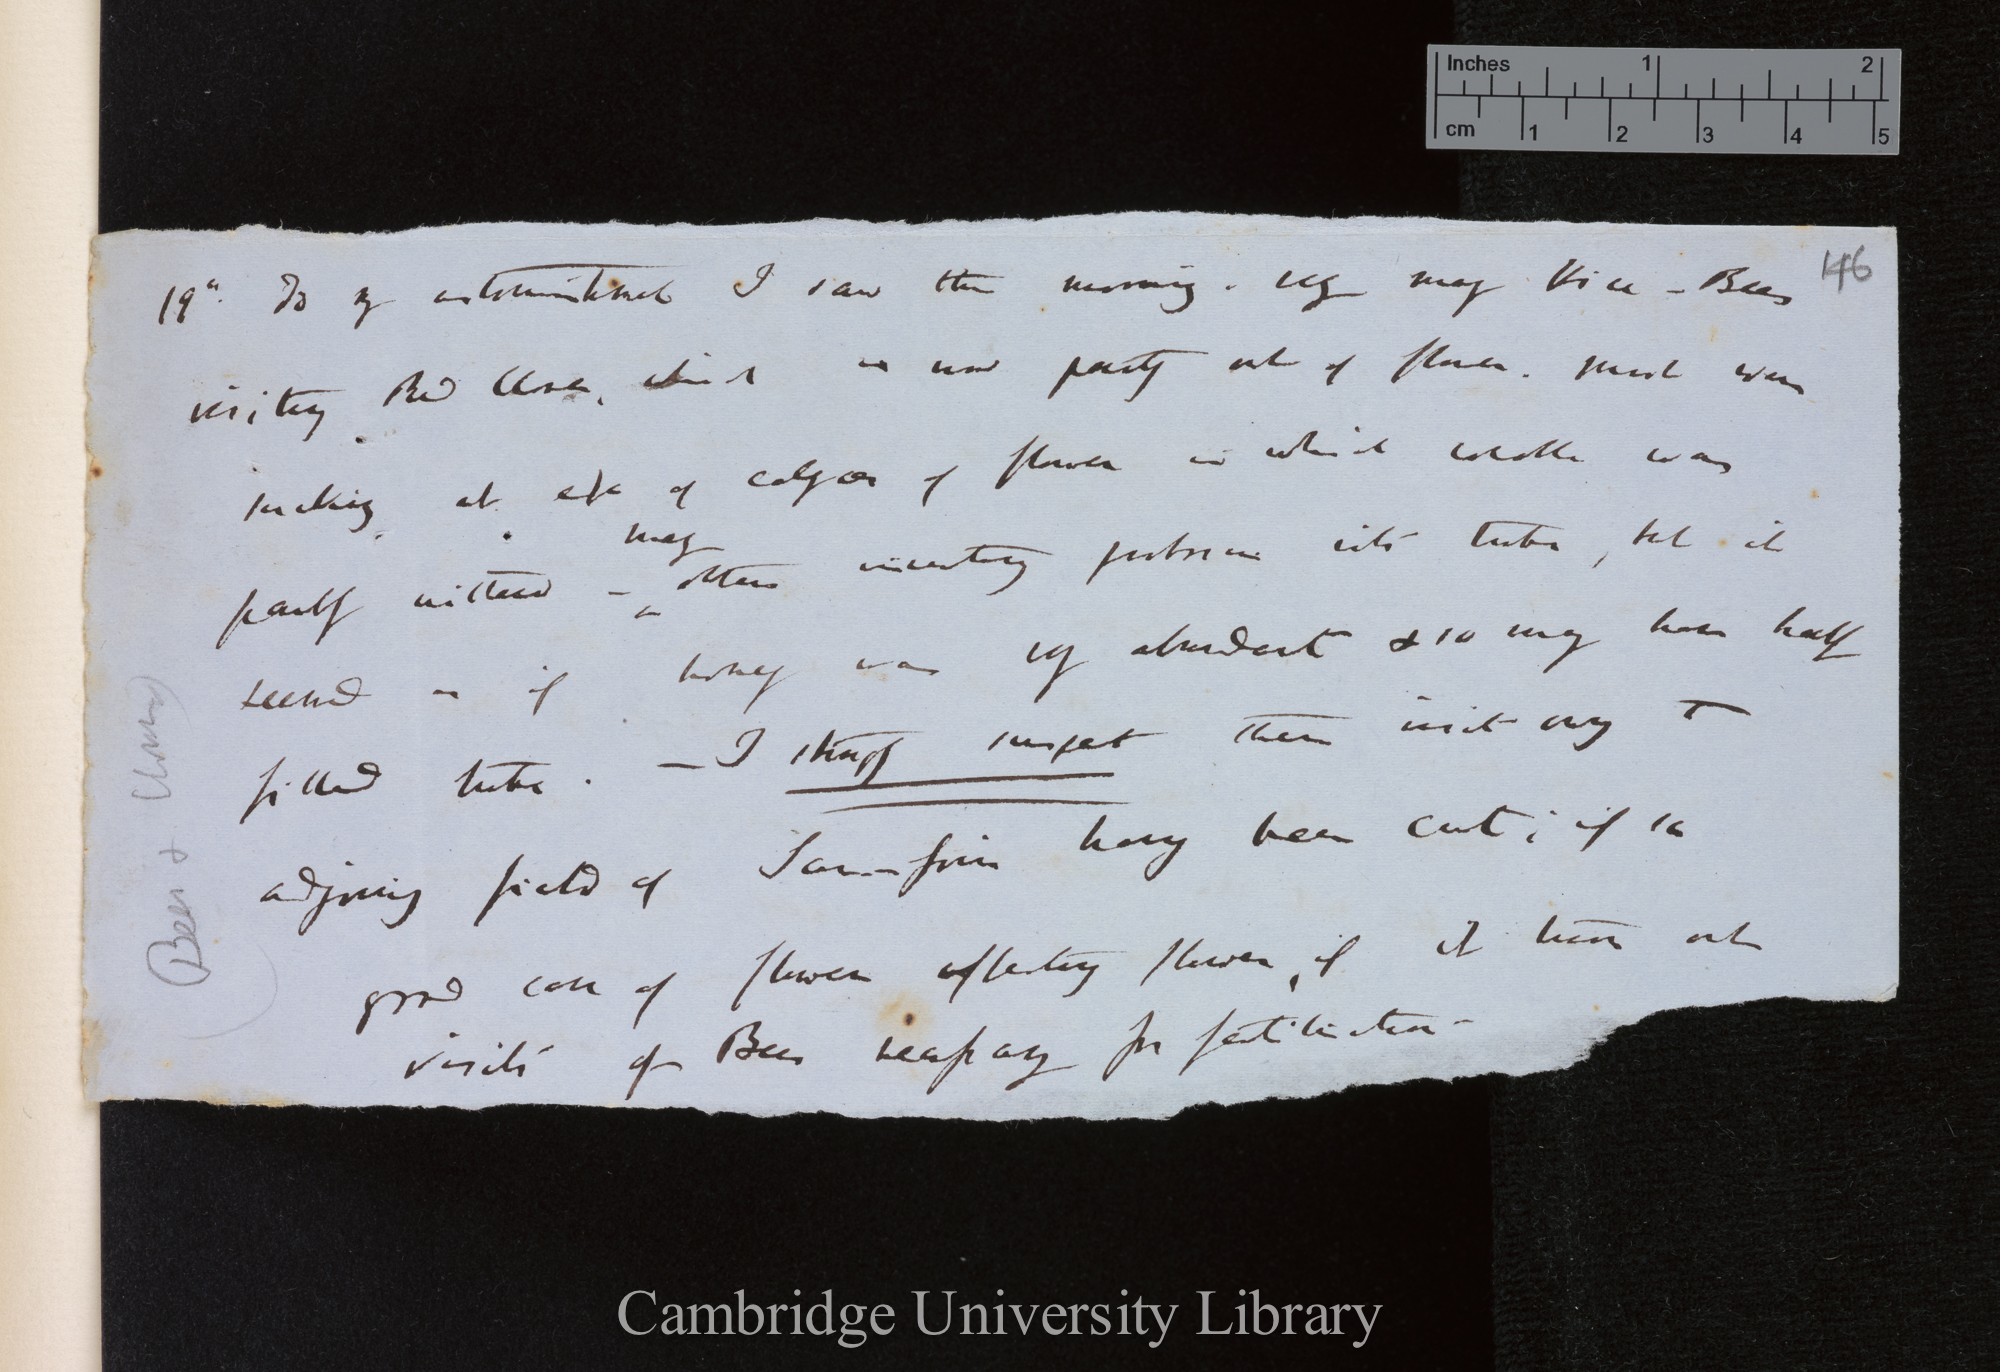 Inches 1 2
cm 1 2 3 4 5
146
19th. To my astonishment I saw this morning. very many Hive-Bees
visiting Red Clover, which is now partly out of flower. most were
sucking at edge of calyces of flower in which corolla was
partly withered – many others inserting proboscis into tube, but it
seemed as if honey was very abundant & so may have half
filled tube. — I strongly suspect them visit owing to
adjoining field of Sain-foin having been cut; if so
good case of flowers affecting flowers, if it turn out
visits of Bees necessary for fertilisation–
Bees & Clover
Cambridge University Library